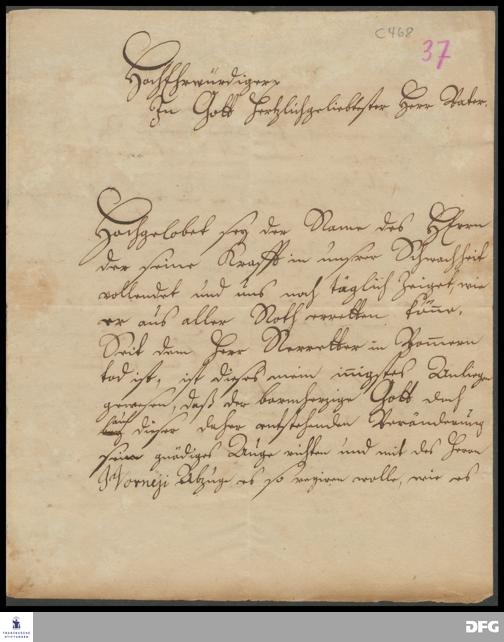 C468
37
HochEhrwürdiger,
In Gott hertzlichgeliebtester Herr Vater.
Hochgelobet sey der Name des HErrn
der seine Krafft in unsrer Schwachheit
vollendet und uns noch täglich zeiget wie
er aus aller Noth erretten könne.
Seit dem Herr Nerretter in Pommern
tod ist, ist dieses mein innigstes Anliegen
gewesen, daß der barmherzige Gott doch
auf
dieser daher entstehenden Veränderung
sein gnädiges Auge richten und mit des Herrn
Horneji Abzuge es so regiren wolle, wie es
FRANCKESCHE
STIFTUNGEN
DFG